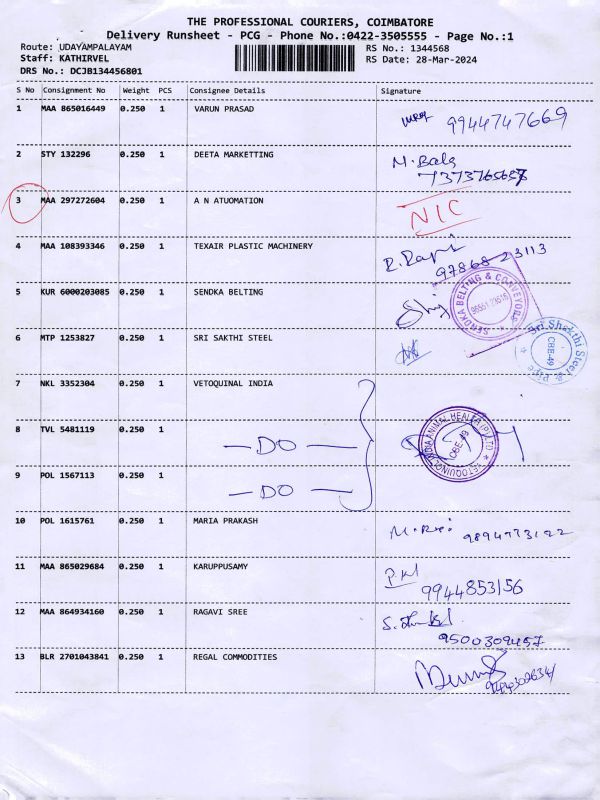 THE PROFESSIONAL COURIERS, COIMBATORE
Delivery Runsheet - PCG - Phone No.:0422-3505555 - Page No.:1
Route: UDAYAMPALAYAM RS No.: 1344568
Staff: KATHIRVEL RS Date: 28-Mar-2024
DRS No.: DCJB134456801
S No Consignment No Weight PCS Consignee Details Signature
1 MAA 865016449 0.250 1 VARUN PRASAD 9944747669
2 STY 132296 0.250 1 DEETA MARKETTING M. Bala
3 MAA 297272604 0.250 1 A N ATUOMATION NIC
4 MAA 108393346 0.250 1 TEXAIR PLASTIC MACHINERY 97868 23113
5 KUR 6000203085 0.250 1 SENDKA BELTING
SENDKA BELTING & CONVEYORS
6 MTP 1253827 0.250 1 SRI SAKTHI STEEL
Sri Shakthi Steel & Pipe CBE-49
7 NKL 3352304 0.250 1 VETOQUINAL INDIA
8 TVL 5481119 0.250 1 — DO —
VETOQUINOL INDIA ANIMAL HEALTH (P) LTD CBE-49
9 POL 1567113 0.250 1 — DO —
10 POL 1615761 0.250 1 MARIA PRAKASH
11 MAA 865029684 0.250 1 KARUPPUSAMY 9944853156
12 MAA 864934160 0.250 1 RAGAVI SREE 9500309457
13 BLR 2701043841 0.250 1 REGAL COMMODITIES